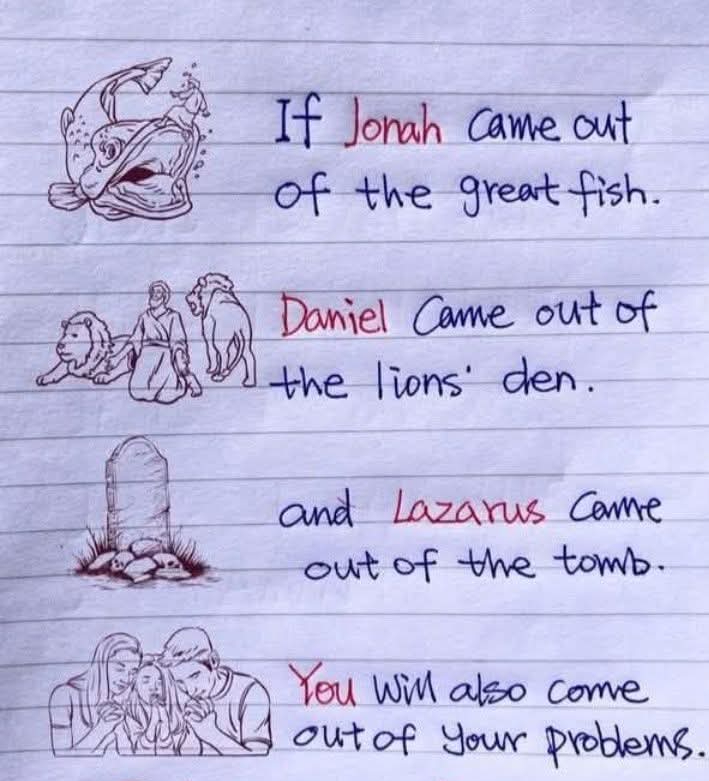 If Jonah came out
of the great fish.
Daniel Came out of
the lions' den.
and Lazarus Came
out of the tomb.
You Will also come
out of Your problems.